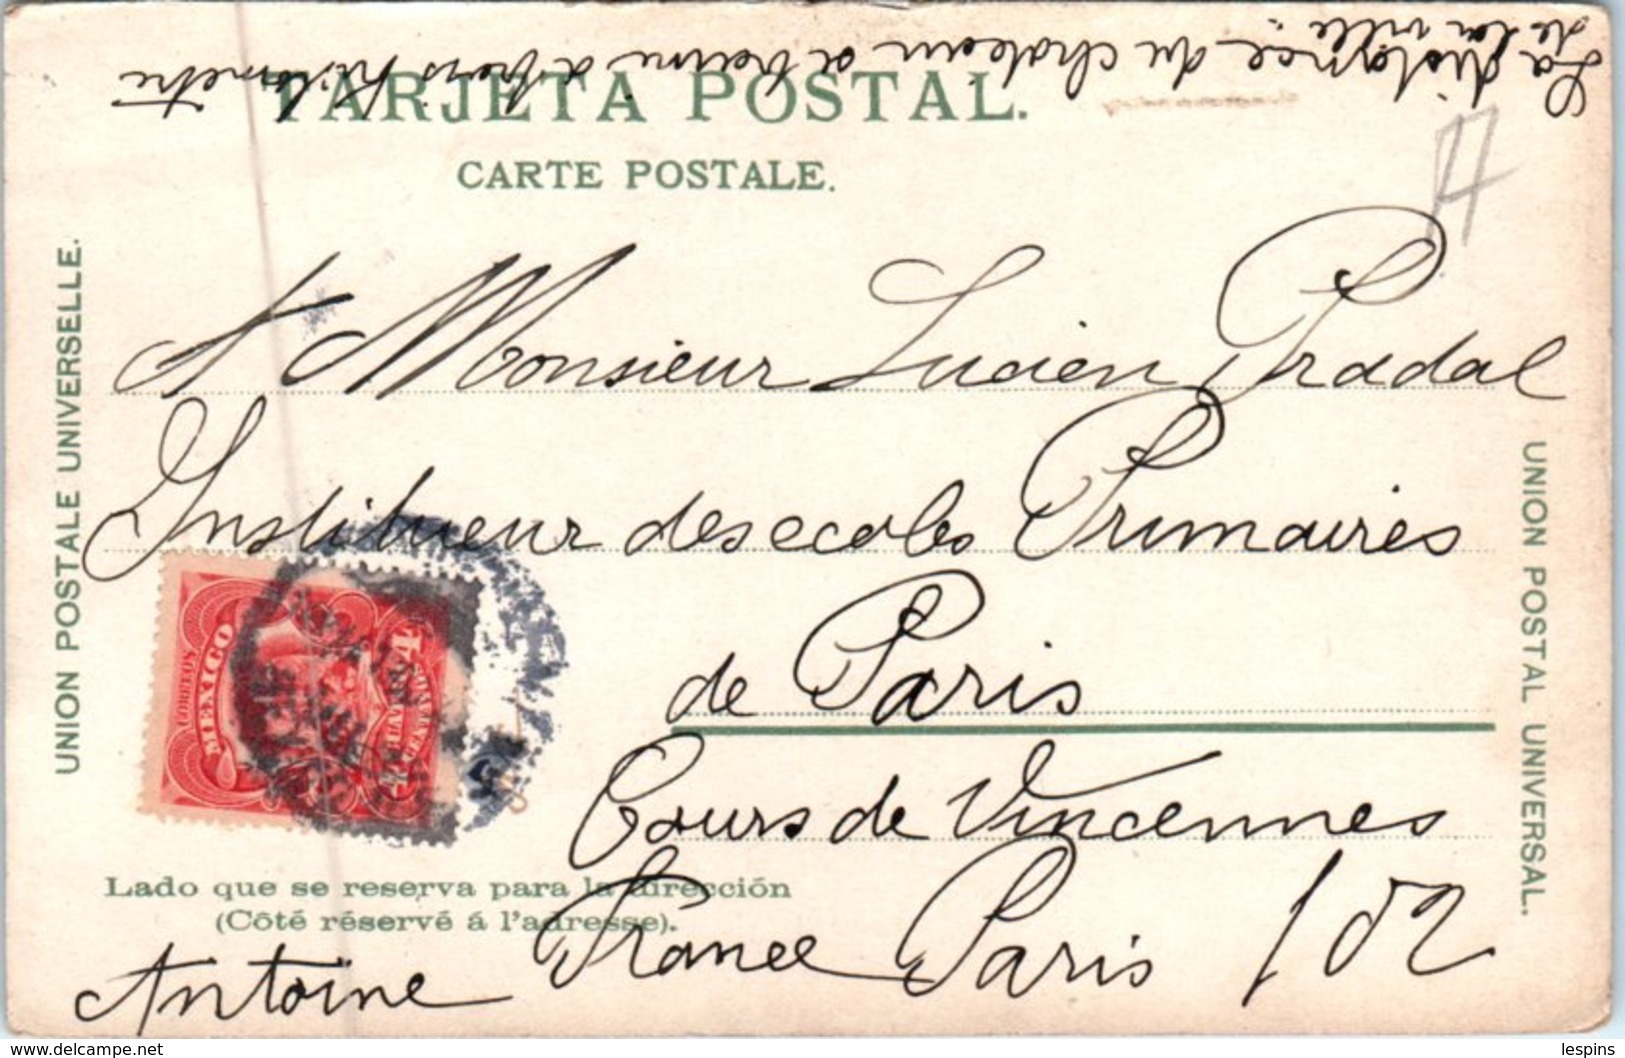 La distance du chateau a
de la ville
TARJETA POSTAL.
CARTE POSTALE.
UNION POSTALE UNIVERSELLE.
UNION POSTAL UNIVERSAL.
A Monsieur Lucien Pradal
Instituteur des ecoles Primaires
de Paris
Cours de Vincennes
France Paris 102
CORREOS
MEXICO
Lado que se reserva para la dirección
(Côté réservé á l'adresse).
Antoine
delcampe.net
lespins